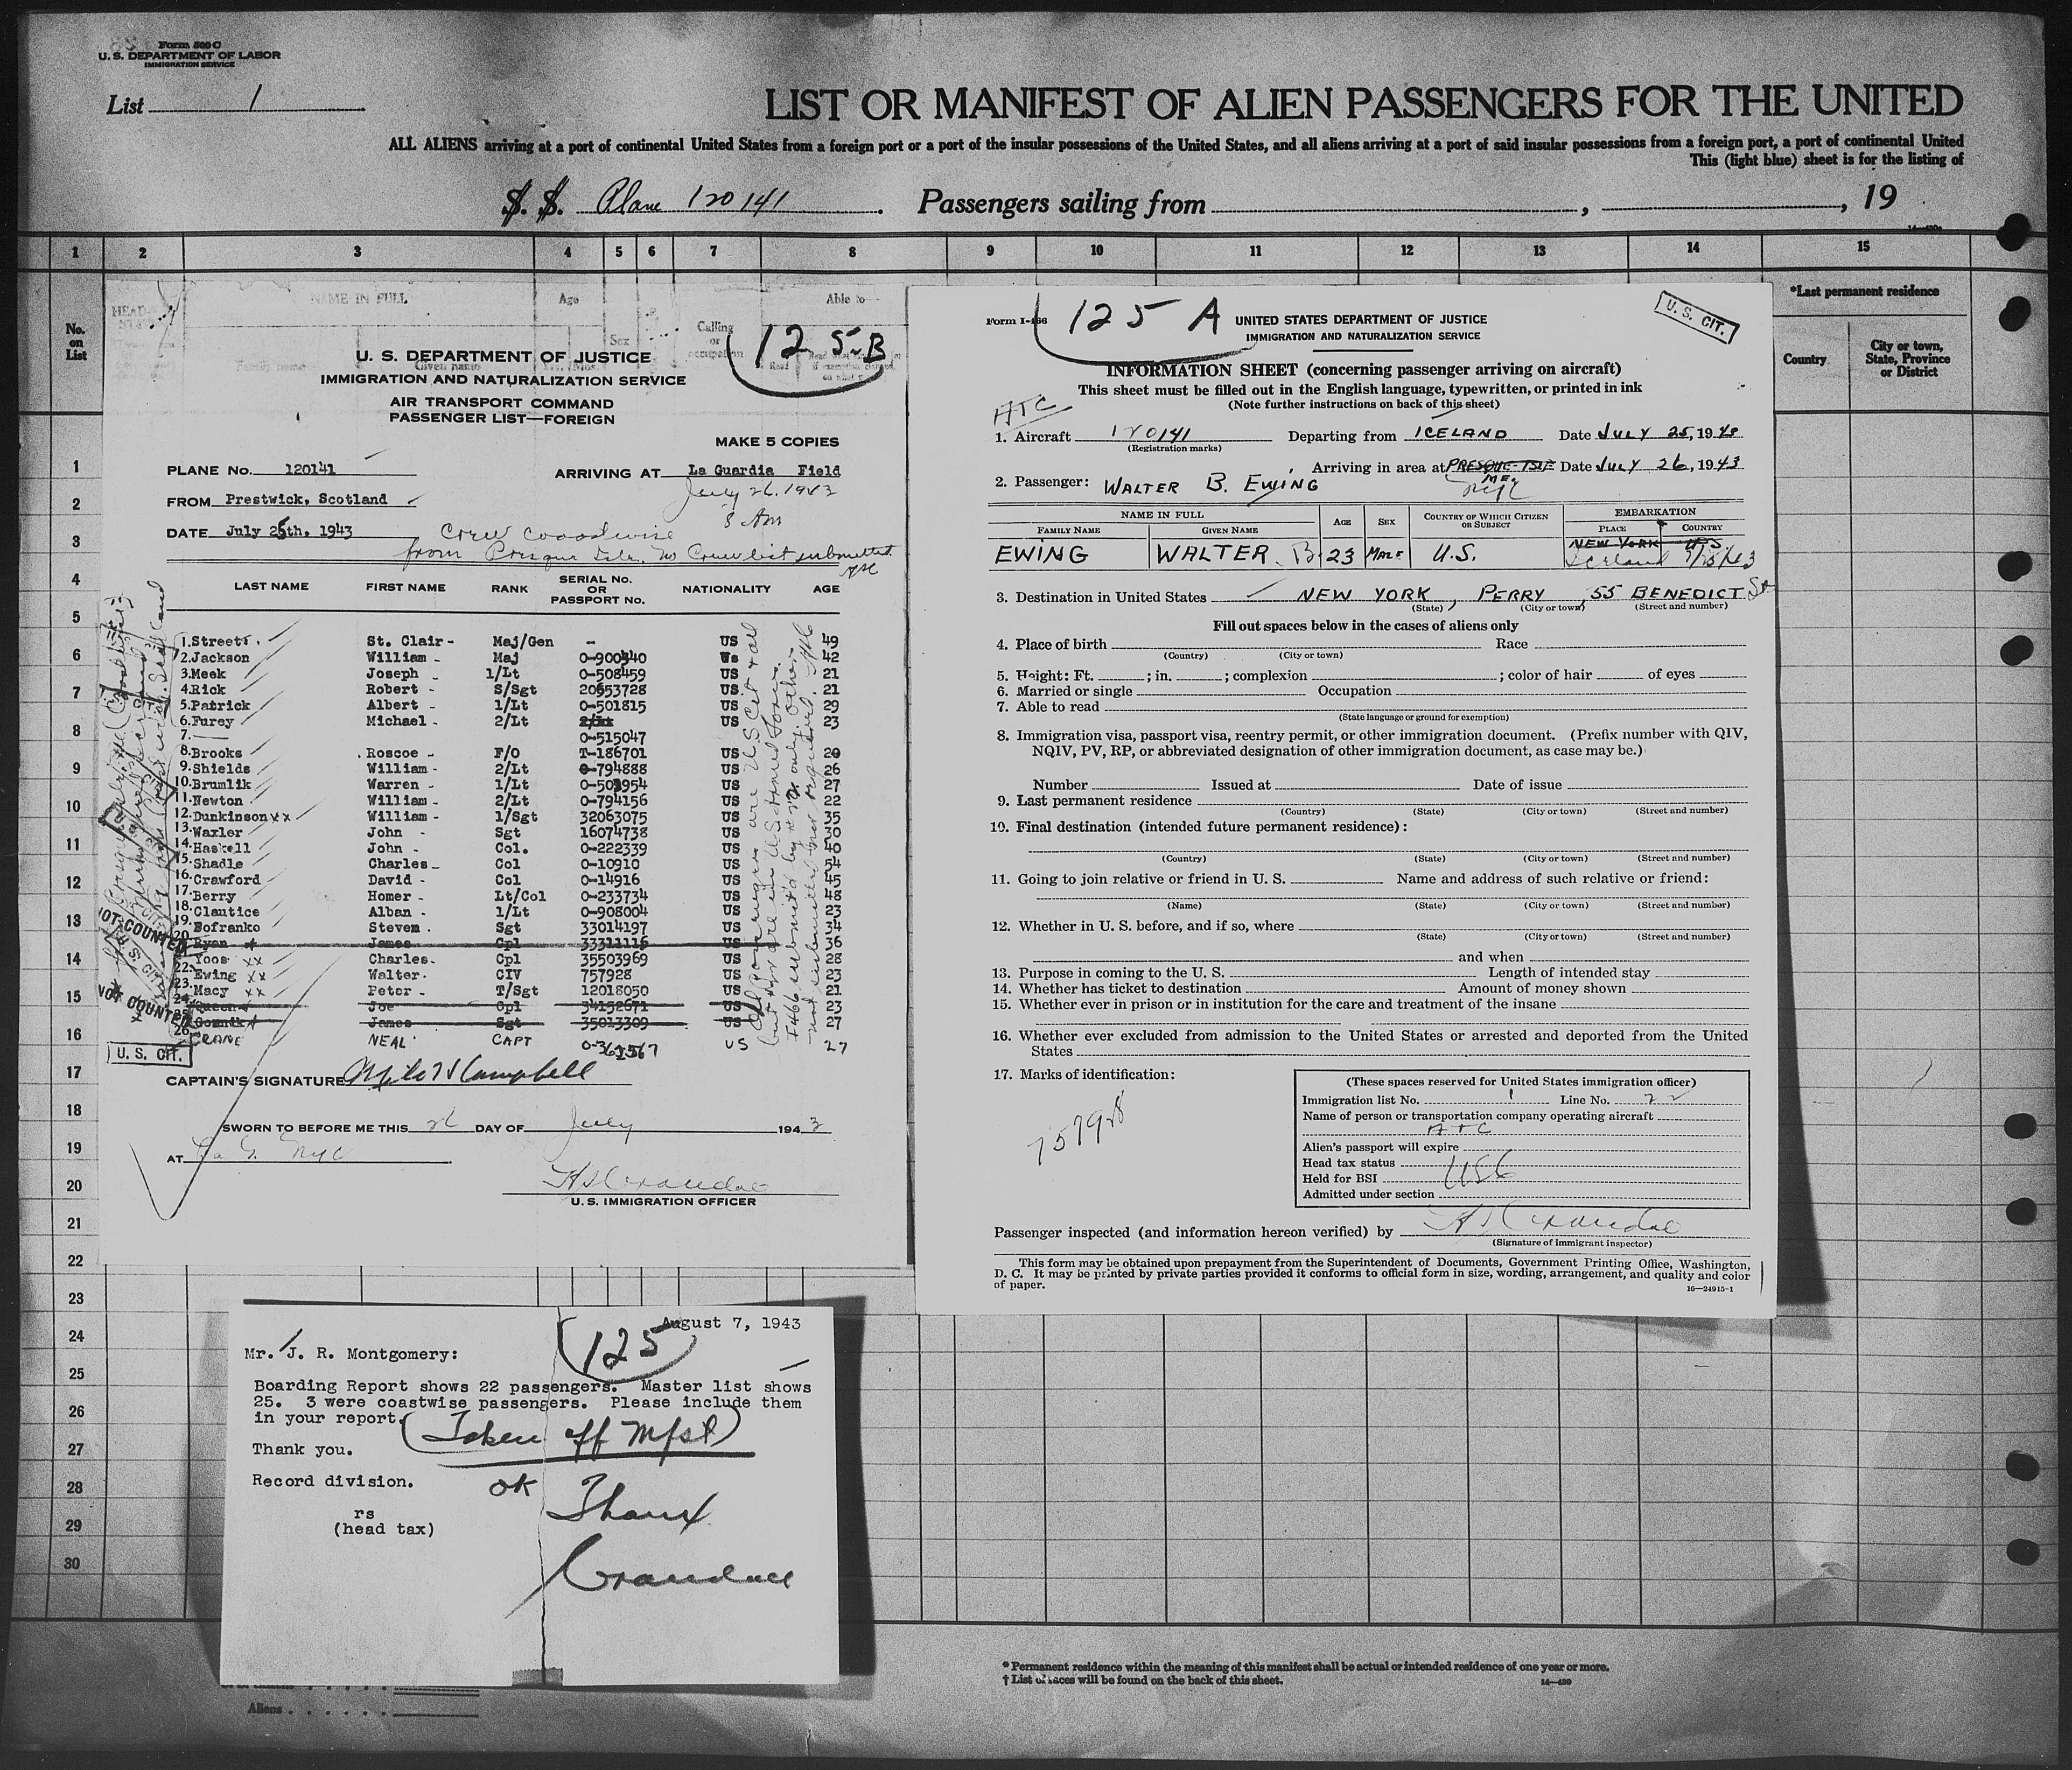 Form 500 C
U. S. DEPARTMENT OF LABOR
IMMIGRATION SERVICE
List 1
LIST OR MANIFEST OF ALIEN PASSENGERS FOR THE UNITED
ALL ALIENS arriving at a port of continental United States from a foreign port or a port of the insular possessions of the United States, and all aliens arriving at a port of said insular possessions from a foreign port, a port of continental United
This (light blue) sheet is for the listing of
S. S. Plane 120141. Passengers sailing from , , 19
1 2 3 4 5 6 7 8 9 10 11 12 13 14 15
No. on List
HEAD
NAME IN FULL
Family name
Given name
Age
Sex
Calling or occupation
Able to
Read
*Last permanent residence
Country
City or town, State, Province or District
1
2
3
4
5
6
7
8
9
10
11
12
13
14
15
16
17
18
19
20
21
22
23
24
25
26
27
28
29
30
125-B
U. S. DEPARTMENT OF JUSTICE
IMMIGRATION AND NATURALIZATION SERVICE
AIR TRANSPORT COMMAND
PASSENGER LIST—FOREIGN
MAKE 5 COPIES
PLANE No. 120141 ARRIVING AT La Guardia Field
July 26, 1943
FROM Prestwick, Scotland
8 Am
DATE July 25th, 1943
Crew coastwise
from Presque Isle. No Crew list submitted
LAST NAME FIRST NAME RANK SERIAL No. OR PASSPORT No. NATIONALITY AGE
1. Street St. Clair - Maj/Gen - US 49
2. Jackson William - Maj 0-900440 Us 42
3. Meek Joseph - 1/Lt 0-508459 US 21
4. Rick Robert - S/Sgt 20653728 US 21
5. Patrick Albert - 1/Lt 0-501815 US 29
6. Furey Michael - 2/Lt 2/Lt US 23
7. 0-515047
8. Brooks Roscoe - F/O T-186701 US 20
9. Shields William - 2/Lt 0-794888 US 26
10. Brumlik Warren - 1/Lt 0-503954 US 27
11. Newton William - 2/Lt 0-794156 US 22
12. Dunkinson xx William - 1/Sgt 32063075 US 35
13. Waxler John - Sgt 16074738 US 30
14. Haskell John - Col. 0-222339 US 40
15. Shadle Charles - Col 0-10910 US 54
16. Crawford David - Col 0-14916 US 45
17. Berry Homer - Lt/Col 0-233734 US 48
18. Clautice Alban - 1/Lt 0-908004 US 23
19. Sofranko Steven . Sgt 33014197 US 34
20. Ryan James Cpl 33311116 US 36
21. Yoos xx Charles - Cpl 35503969 US 28
22. Ewing xx Walter - CIV 757928 US 23
23. Macy xx Peter - T/Sgt 12018050 US 21
24. Queen Joe Cpl 34152671 US 23
25. James Sgt 35013309 US 27
26. CRANE NEAL CAPT US 27
NOT COUNTED
NOT COUNTED
U. S. CIT.
CAPTAIN'S SIGNATURE Milo H Campbell
SWORN TO BEFORE ME THIS 26 DAY OF July 1943
AT La G. NYC
H S Crandall
U. S. IMMIGRATION OFFICER
125 A
Form I-466
U. S. CIT.
UNITED STATES DEPARTMENT OF JUSTICE
IMMIGRATION AND NATURALIZATION SERVICE
INFORMATION SHEET (concerning passenger arriving on aircraft)
This sheet must be filled out in the English language, typewritten, or printed in ink
(Note further instructions on back of this sheet)
ATC
1. Aircraft 120141 Departing from ICELAND Date JULY 25, 1943
(Registration marks)
Arriving in area at PRESQUE ISLE ME. Date JULY 26, 1943
2. Passenger: WALTER B. EWING
NAME IN FULL AGE SEX COUNTRY OF WHICH CITIZEN OR SUBJECT EMBARKATION
FAMILY NAME GIVEN NAME PLACE COUNTRY
NEW YORK US
EWING WALTER B. 23 MALE U.S. Iceland 7/25/43
3. Destination in United States NEW YORK, PERRY, 55 BENEDICT St
(State) (City or town) (Street and number)
Fill out spaces below in the cases of aliens only
4. Place of birth Race
(Country) (City or town)
5. Height: Ft. ; in. ; complexion ; color of hair of eyes
6. Married or single Occupation
7. Able to read
(State language or ground for exemption)
8. Immigration visa, passport visa, reentry permit, or other immigration document. (Prefix number with QIV,
NQIV, PV, RP, or abbreviated designation of other immigration document, as case may be.)
Number Issued at Date of issue
9. Last permanent residence
(Country) (State) (City or town) (Street and number)
10. Final destination (intended future permanent residence):
(Country) (State) (City or town) (Street and number)
11. Going to join relative or friend in U. S. Name and address of such relative or friend:
(Name) (State) (City or town) (Street and number)
12. Whether in U. S. before, and if so, where
(State) (City or town) (Street and number)
and when
13. Purpose in coming to the U. S. Length of intended stay
14. Whether has ticket to destination Amount of money shown
15. Whether ever in prison or in institution for the care and treatment of the insane
16. Whether ever excluded from admission to the United States or arrested and deported from the United
States
17. Marks of identification:
757928
(These spaces reserved for United States immigration officer)
Immigration list No. 1 Line No. 22
Name of person or transportation company operating aircraft
ATC
Alien's passport will expire
Head tax status USC
Held for BSI
Admitted under section
Passenger inspected (and information hereon verified) by H S Crandall
(Signature of immigrant inspector)
This form may be obtained upon prepayment from the Superintendent of Documents, Government Printing Office, Washington,
D. C. It may be printed by private parties provided it conforms to official form in size, wording, arrangement, and quality and color
of paper.
16—24915-1
August 7, 1943
125
Mr. J. R. Montgomery:
Boarding Report shows 22 passengers. Master list shows
25. 3 were coastwise passengers. Please include them
in your report.
(Taken off Mfst)
Thank you.
Record division.
OK Thanx
rs
(head tax)
Crandall
* Permanent residence within the meaning of this manifest shall be actual or intended residence of one year or more.
† List of races will be found on the back of this sheet.
Aliens